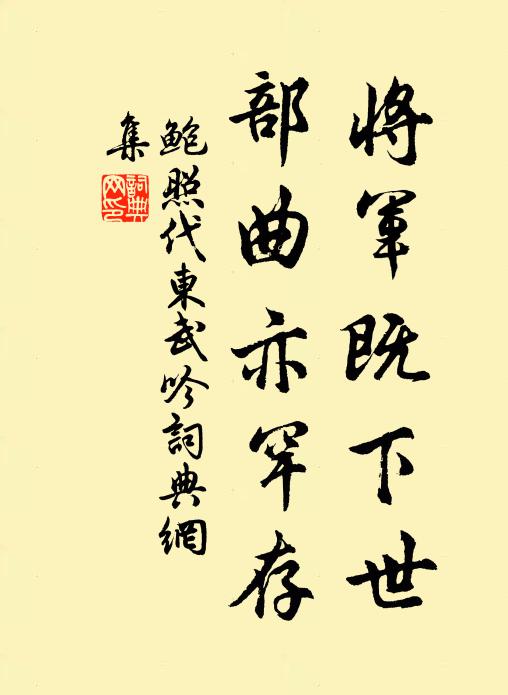 將軍既下世
部曲亦罕存
鮑照代東武吟詞典網
集
詞典
网印